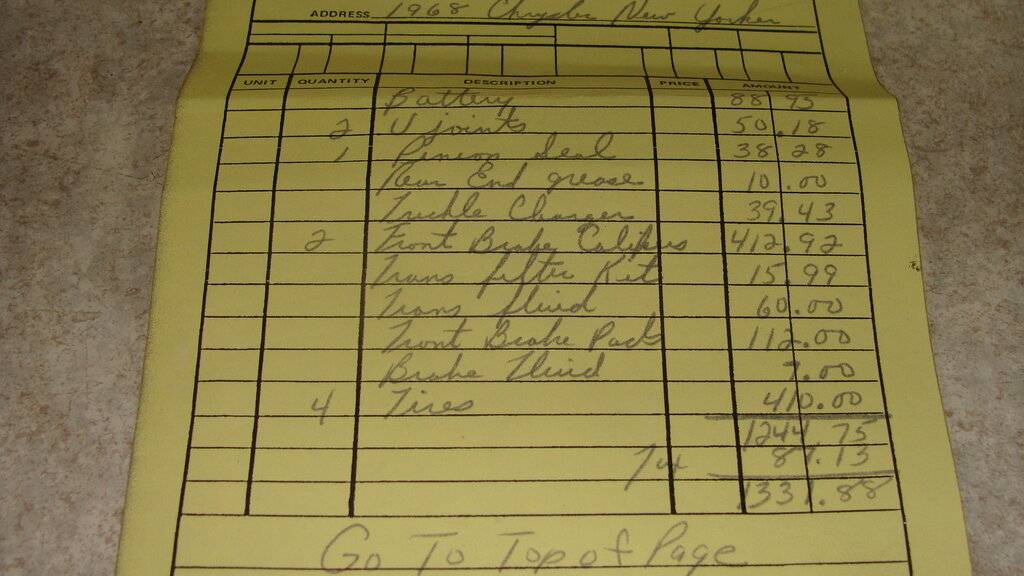 ADDRESS 1968 Chrysler New Yorker
UNIT QUANTITY DESCRIPTION PRICE AMOUNT
Battery 88 95
2 U joints 50.18
1 Pinion Seal 38 28
Rear End grease 10.00
Trickle Charger 39.43
2 Front Brake Calipers 412.92
Trans filter Kit 15.99
Trans fluid 60.00
Front Brake Pads 112.00
Brake Fluid 7.00
4 Tires 410.00
1244.75
Tax 87.13
1331.88
Go To Top of Page